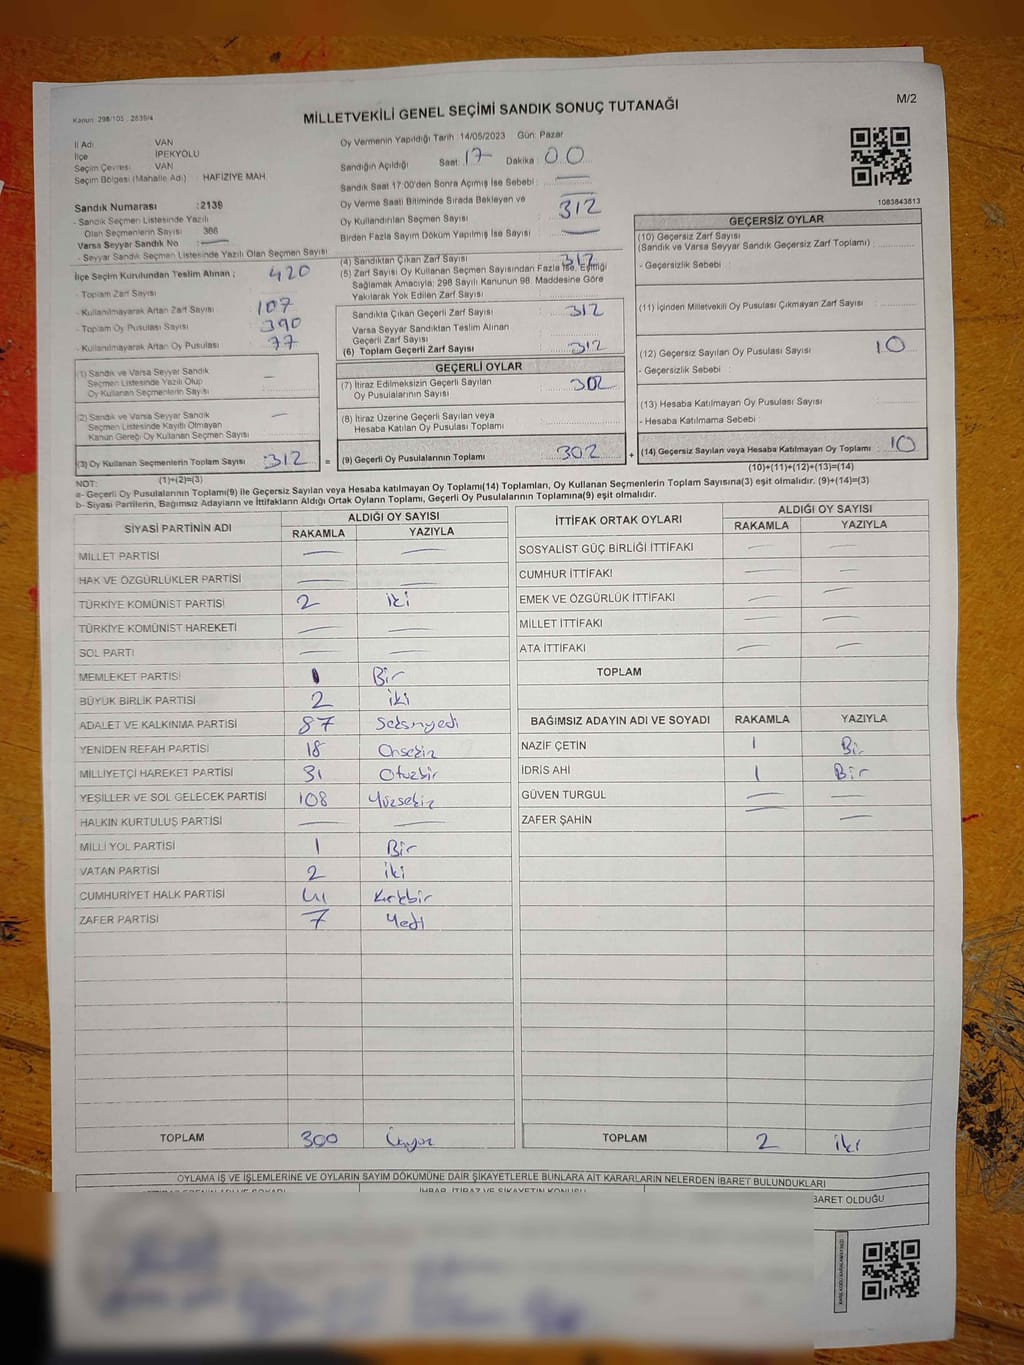 M/2
Kanun: 298/105, 2839/4
MİLLETVEKİLİ GENEL SEÇİMİ SANDIK SONUÇ TUTANAĞI
İl Adı VAN
İlçe İPEKYOLU
Seçim Çevresi VAN
Seçim Bölgesi (Mahalle Adı) : HAFIZİYE MAH
Sandık Numarası :2139
- Sandık Seçmen Listesinde Yazılı
Olan Seçmenlerin Sayısı 386
Varsa Seyyar Sandık No :
- Seyyar Sandık Seçmen Listesinde Yazılı Olan Seçmen Sayısı
İlçe Seçim Kurulundan Teslim Alınan ;
- Toplam Zarf Sayısı 420
- Kullanılmayarak Artan Zarf Sayısı 107
- Toplam Oy Pusulası Sayısı 390
- Kullanılmayarak Artan Oy Pusulası 77
(1) Sandık ve Varsa Seyyar Sandık
Seçmen Listesinde Yazılı Olup
Oy Kullanan Seçmenlerin Sayısı : —
(2) Sandık ve Varsa Seyyar Sandık
Seçmen Listesinde Kayıtlı Olmayan
Kanun Gereği Oy Kullanan Seçmen Sayısı —
(3) Oy Kullanan Seçmenlerin Toplam Sayısı :312 =
(1)+(2)=(3)
Oy Vermenin Yapıldığı Tarih :14/05/2023 Gün: Pazar
Sandığın Açıldığı Saat: 17 Dakika: 00
Sandık Saat 17:00'den Sonra Açılmış İse Sebebi : —
Oy Verme Saati Bitiminde Sırada Bekleyen ve
Oy Kullandırılan Seçmen Sayısı 312
Birden Fazla Sayım Döküm Yapılmış İse Sayısı : —
(4) Sandıktan Çıkan Zarf Sayısı 312
(5) Zarf Sayısı Oy Kullanan Seçmen Sayısından Fazla İse, Eşitliği
Sağlamak Amacıyla; 298 Sayılı Kanunun 98. Maddesine Göre
Yakılarak Yok Edilen Zarf Sayısı :
Sandıkta Çıkan Geçerli Zarf Sayısı 312
Varsa Seyyar Sandıktan Teslim Alınan
Geçerli Zarf Sayısı
(6) Toplam Geçerli Zarf Sayısı 312
GEÇERLİ OYLAR
(7) İtiraz Edilmeksizin Geçerli Sayılan
Oy Pusulalarının Sayısı : 302
(8) İtiraz Üzerine Geçerli Sayılan veya
Hesaba Katılan Oy Pusulası Toplamı :
(9) Geçerli Oy Pusulalarının Toplamı : 302 +
1083843813
GEÇERSİZ OYLAR
(10) Geçersiz Zarf Sayısı
(Sandık ve Varsa Seyyar Sandık Geçersiz Zarf Toplamı) :
- Geçersizlik Sebebi :
(11) İçinden Milletvekili Oy Pusulası Çıkmayan Zarf Sayısı :
(12) Geçersiz Sayılan Oy Pusulası Sayısı : 10
- Geçersizlik Sebebi :
(13) Hesaba Katılmayan Oy Pusulası Sayısı :
- Hesaba Katılmama Sebebi :
(14) Geçersiz Sayılan veya Hesaba Katılmayan Oy Toplamı : 10
(10)+(11)+(12)+(13)=(14)
NOT:
a- Geçerli Oy Pusulalarının Toplamı(9) ile Geçersiz Sayılan veya Hesaba katılmayan Oy Toplamı(14) Toplamları, Oy Kullanan Seçmenlerin Toplam Sayısına(3) eşit olmalıdır. (9)+(14)=(3)
b- Siyasi Partilerin, Bağımsız Adayların ve İttifakların Aldığı Ortak Oyların Toplamı, Geçerli Oy Pusulalarının Toplamına(9) eşit olmalıdır.
SİYASİ PARTİNİN ADI ALDIĞI OY SAYISI
RAKAMLA YAZIYLA
MİLLET PARTİSİ — —
HAK VE ÖZGÜRLÜKLER PARTİSİ — —
TÜRKİYE KOMÜNİST PARTİSİ 2 iki
TÜRKİYE KOMÜNİST HAREKETİ — —
SOL PARTİ — —
MEMLEKET PARTİSİ 1 Bir
BÜYÜK BİRLİK PARTİSİ 2 iki
ADALET VE KALKINMA PARTİSİ 87 Seksnyedi
YENİDEN REFAH PARTİSİ 18 Onsekiz
MİLLİYETÇİ HAREKET PARTİSİ 31 Otuzbir
YEŞİLLER VE SOL GELECEK PARTİSİ 108 Yüzsekiz
HALKIN KURTULUŞ PARTİSİ — —
MİLLİ YOL PARTİSİ 1 Bir
VATAN PARTİSİ 2 iki
CUMHURİYET HALK PARTİSİ 41 Kırkbir
ZAFER PARTİSİ 7 Yedi
TOPLAM 300 Üçyüz
İTTİFAK ORTAK OYLARI ALDIĞI OY SAYISI
RAKAMLA YAZIYLA
SOSYALİST GÜÇ BİRLİĞİ İTTİFAKI — —
CUMHUR İTTİFAKI — —
EMEK VE ÖZGÜRLÜK İTTİFAKI — —
MİLLET İTTİFAKI — —
ATA İTTİFAKI — —
TOPLAM
BAĞIMSIZ ADAYIN ADI VE SOYADI RAKAMLA YAZIYLA
NAZİF ÇETİN 1 Bir
İDRİS AHİ 1 Bir
GÜVEN TURGUL — —
ZAFER ŞAHİN — —
TOPLAM 2 iki
OYLAMA İŞ VE İŞLEMLERİNE VE OYLARIN SAYIM DÖKÜMÜNE DAİR ŞİKAYETLERLE BUNLARA AİT KARARLARIN NELERDEN İBARET BULUNDUKLARI
İHBAR, İTİRAZ VE ŞİKAYETİN KONUSU
BARET OLDUĞU